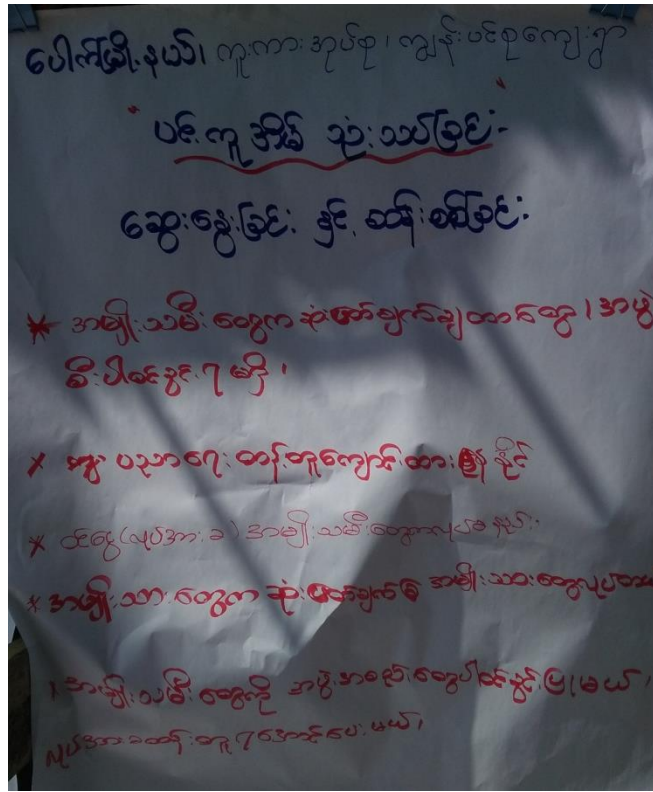 ပေါက်မြို့နယ်၊ ကူးကားအုပ်စု၊ ကျွန်းပင်စုကျေးရွာ
"ပင့်ကူအိမ် သုံးသပ်ခြင်း"
ဆွေးနွေးခြင်း နှင့် ဆန်းစစ်ခြင်း
* အမျိုးသမီးတွေက ဆုံးဖတ်ချက်ချတာတွေ၊ အဖွဲ့
စီးပါဝင်ခွင့် ၇ မရှိ၊
x ပညာရေး တန်းတူကျောင်းထား နိုင်
* ဝင်ငွေ (လုပ်အားခ) အမျိုးသမီးတွေက နည်း
* အမျိုးသားတွေက ဆုံးဖတ်ချက် အမျိုးသားတွေလုပ်တာ
၊ အမျိုးသမီးတွေကို အဖွဲ့အစည်းတွေပါဝင်ခွင့်ပြုမယ်၊
လုပ်အားခတန်းတူ ၇အောင်ပေးမယ်၊